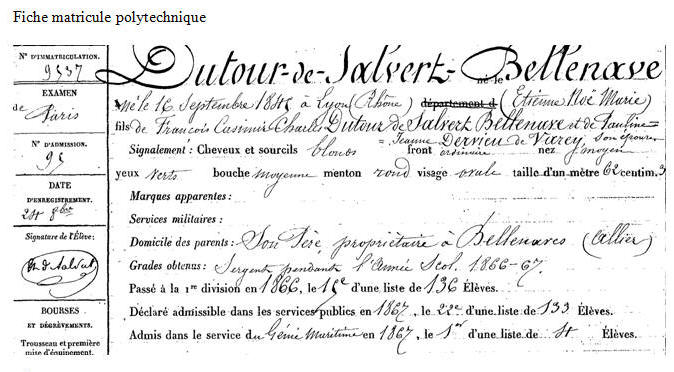 Fiche matricule polytechnique
Nº D'IMMATRICULATION.
9537
EXAMEN
de Paris
Nº D'ADMISSION.
95
DATE
D'ENREGISTREMENT.
24 8bre
Signature de l'Élève:
BOURSES
ET DÉGRÈVEMENTS.
Trousseau et première
mise d'équipement.
Dutour-de-Salvert-Bellenave
né le 16 Septembre 1845 à Lyon (Rhône) département d (Etienne Noë Marie)
fils de François Casimir Charles Dutour de Salvert Bellenave et de Pauline
Jeanne Dervieu de Varey, son épouse
Signalement: Cheveux et sourcils blonds front ordinaire nez moyen
yeux verts bouche moyenne menton rond visage ovale taille d'un mètre 62 centim. 3
Marques apparentes:
Services militaires:
Domicile des parents: Son Père, propriétaire à Bellenaves (Allier)
Grades obtenus: Sergent pendant l'Année Scol. 1866-67.
Passé à la 1re division en 1866, le 15e d'une liste de 136 Élèves.
Déclaré admissible dans les services publics en 1867, le 22e d'une liste de 133 Élèves.
Admis dans le service du Génie Maritime en 1867, le 1er d'une liste de Élèves.